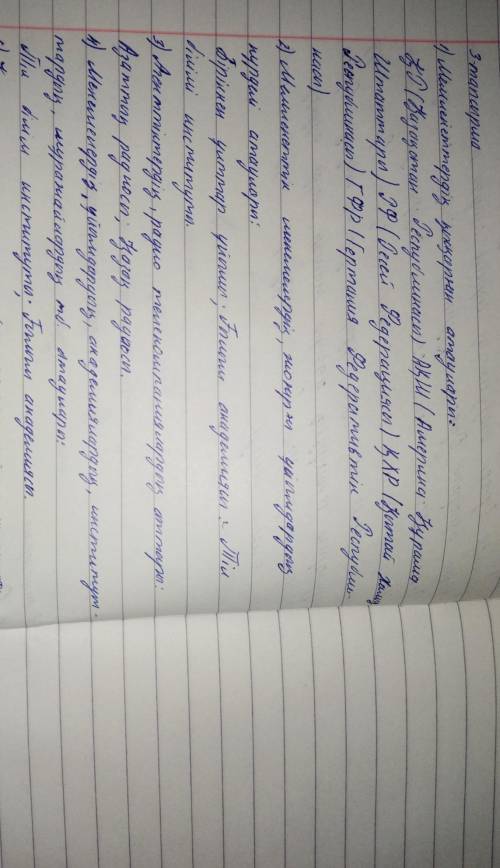 3 тапсырма
1) Мемлекеттердің қысқарған атаулары:
ҚР (Қазақстан Республикасы) АҚШ (Америка Құрама
Штаттары) РФ (Ресей Федерациясы) ҚХР (Қытай Халық
Республикасы) ГФР (Германия Федеративтік Республи-
касы)
2) Мемлекеттік мекемелердің, жоғарғы ұйымдардың
күрделі атаулары:
Біріккен ұлттар ұйымы, Ғылым академиясы. Тіл
білімі институты.
3) Агенттіктердің, радио телекомпаниялардың аттары:
Азаттық радиосы, Қазақ радиосы.
4) Мекемелердің, ұйымдардың, академиялардың, институт-
тардың, мұражайлардың т.б. атаулары:
Тіл білім институты. Ғылым академиясы.